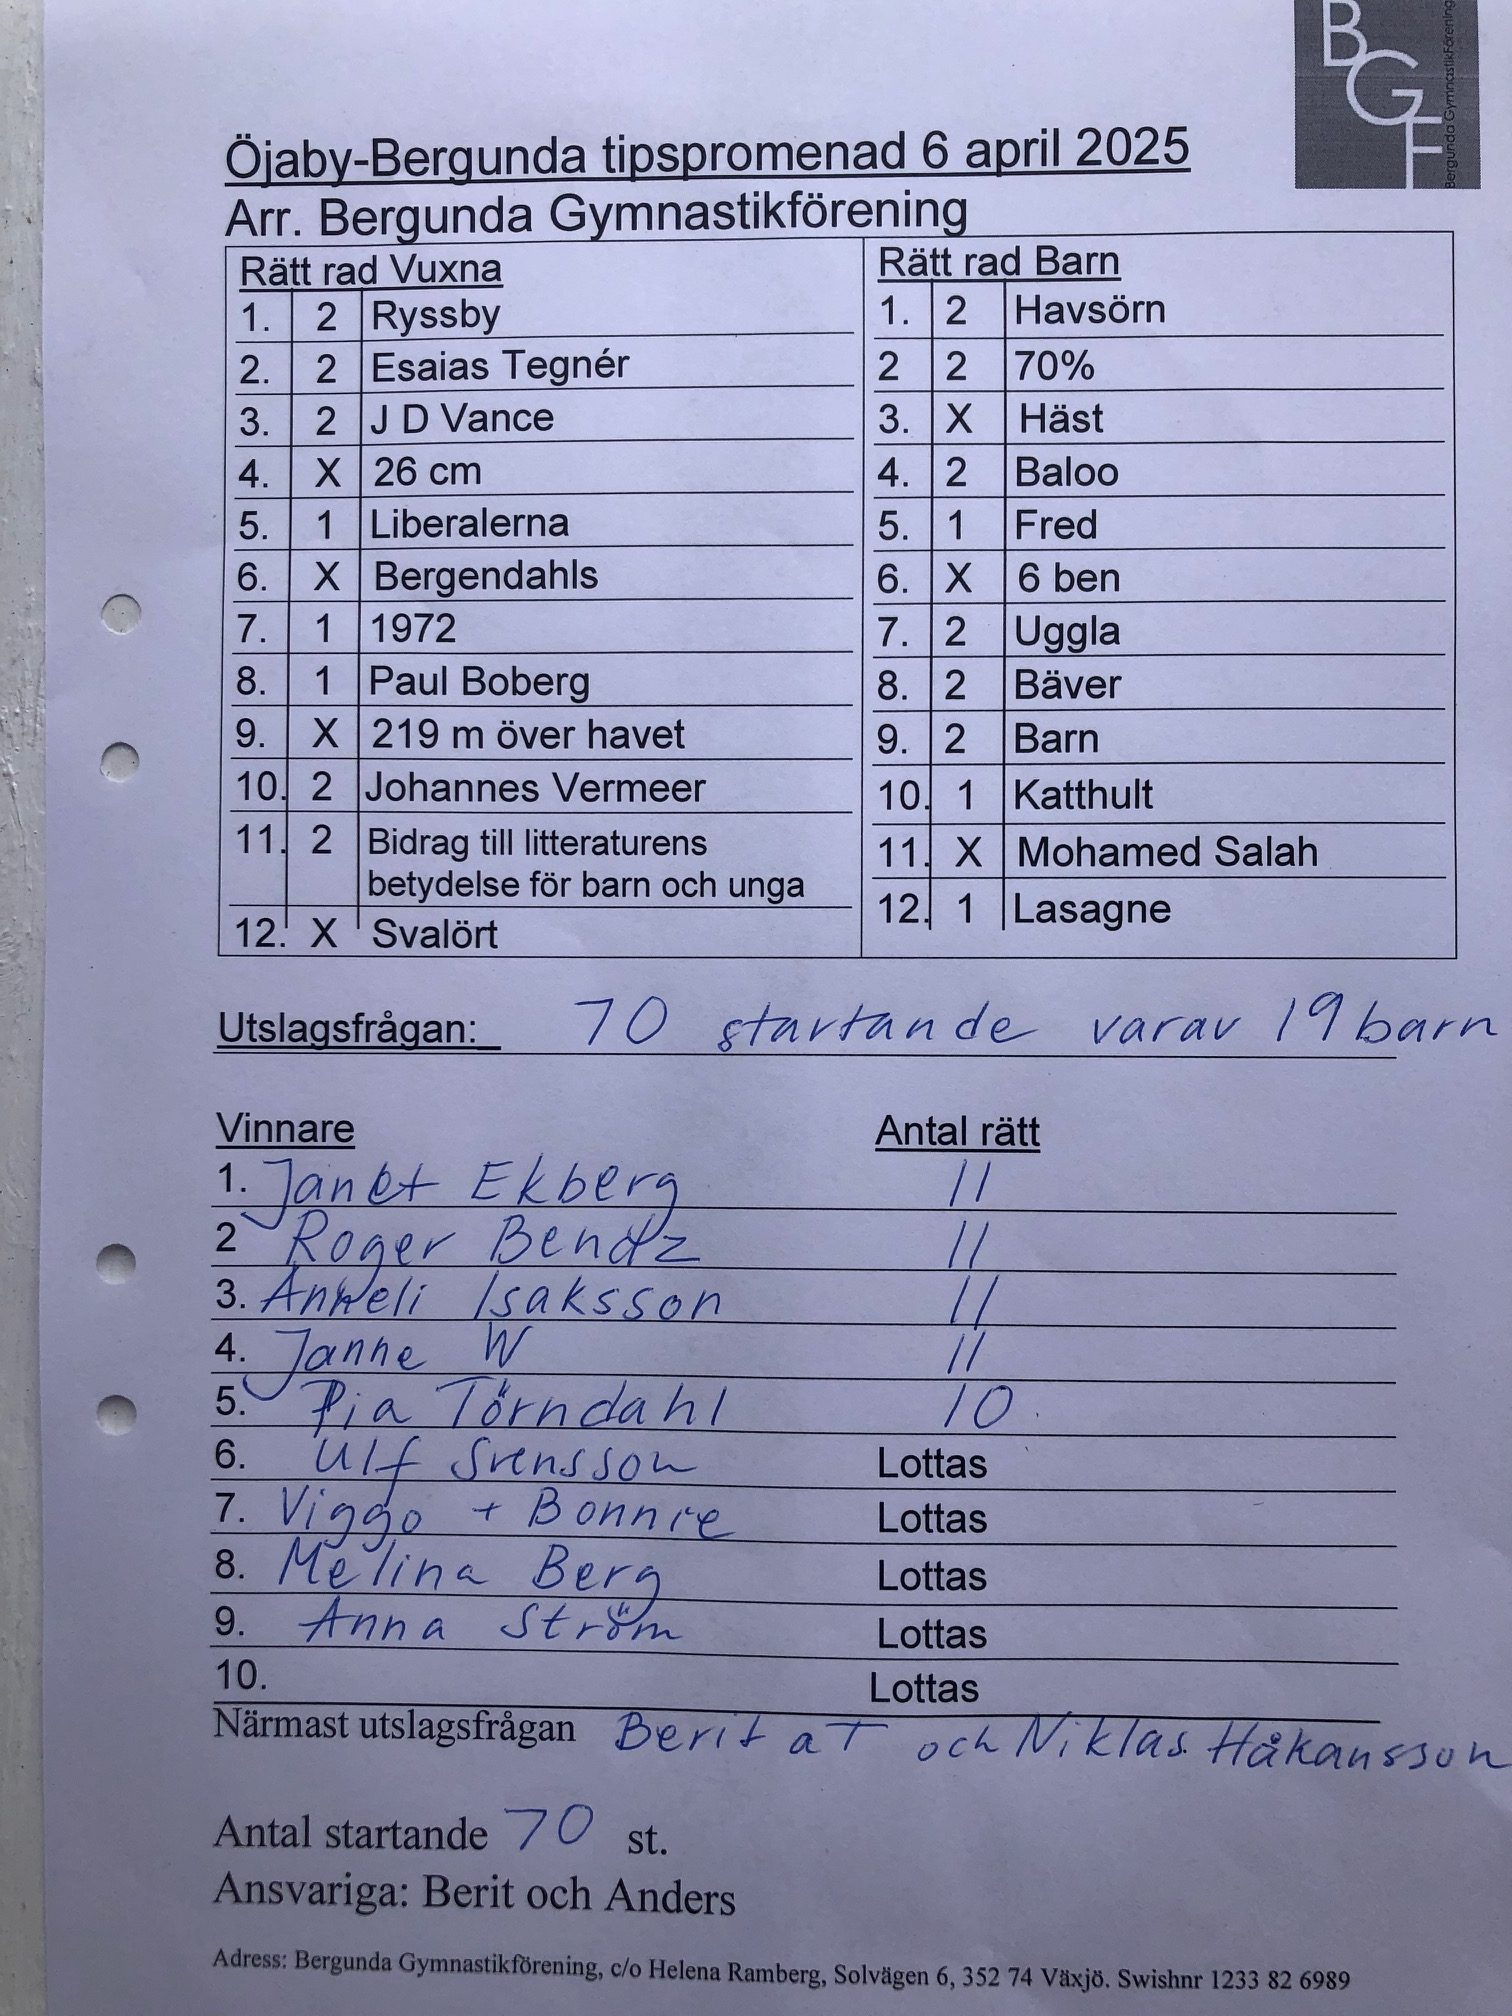 BGF
Bergunda Gymnastikförening
Öjaby-Bergunda tipspromenad 6 april 2025
Arr. Bergunda Gymnastikförening
Rätt rad Vuxna
1. 2 Ryssby
2. 2 Esaias Tegnér
3. 2 J D Vance
4. X 26 cm
5. 1 Liberalerna
6. X Bergendahls
7. 1 1972
8. 1 Paul Boberg
9. X 219 m över havet
10. 2 Johannes Vermeer
11. 2 Bidrag till litteraturens
betydelse för barn och unga
12. X Svalört
Rätt rad Barn
1. 2 Havsörn
2 2 70%
3. X Häst
4. 2 Baloo
5. 1 Fred
6. X 6 ben
7. 2 Uggla
8. 2 Bäver
9. 2 Barn
10. 1 Katthult
11. X Mohamed Salah
12. 1 Lasagne
Utslagsfrågan: 70 startande varav 19 barn
Vinnare Antal rätt
1. Janet Ekberg 11
2 Roger Bendz 11
3. Anneli Isaksson 11
4. Janne W 11
5. Pia Törndahl 10
6. Ulf Svensson Lottas
7. Viggo + Bonnie Lottas
8. Melina Berg Lottas
9. Anna Ström Lottas
10. Lottas
Närmast utslagsfrågan Berit aT och Niklas Håkansson
Antal startande 70 st.
Ansvariga: Berit och Anders
Adress: Bergunda Gymnastikförening, c/o Helena Ramberg, Solvägen 6, 352 74 Växjö. Swishnr 1233 82 6989